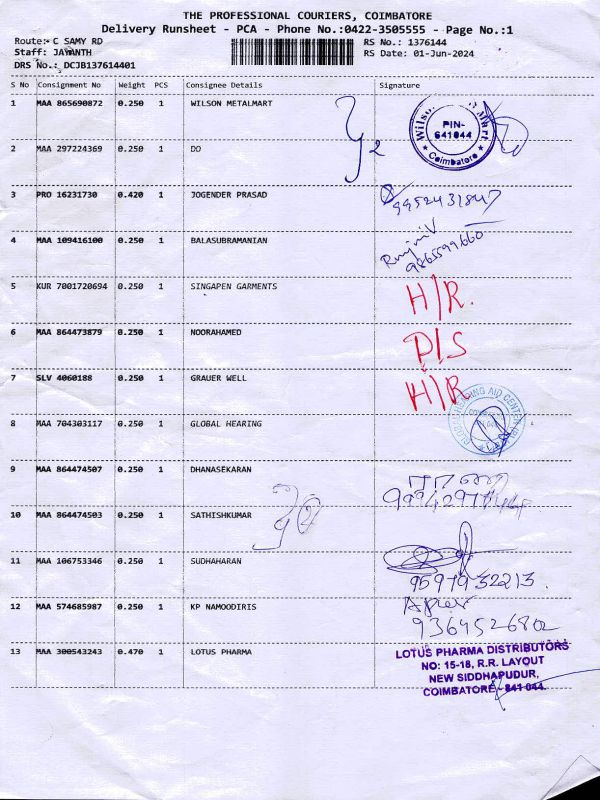 THE PROFESSIONAL COURIERS, COIMBATORE
Delivery Runsheet - PCA - Phone No.:0422-3505555 - Page No.:1
Route:- C SAMY RD
Staff: JAYANTH
DRS No.: DCJB137614401
RS No.: 1376144
RS Date: 01-Jun-2024
S No Consignment No Weight PCS Consignee Details Signature
1 MAA 865690872 0.250 1 WILSON METALMART
PIN-
641044
Coimbatore
2 MAA 297224369 0.250 1 DO
3 PRO 16231730 0.420 1 JOGENDER PRASAD
4 MAA 109416100 0.250 1 BALASUBRAMANIAN
9865599660
5 KUR 7001720694 0.250 1 SINGAPEN GARMENTS H/R.
6 MAA 864473879 0.250 1 NOORAHAMED D/S
7 SLV 4060188 0.250 1 GRAUER WELL H/R
8 MAA 704303117 0.250 1 GLOBAL HEARING
9 MAA 864474507 0.250 1 DHANASEKARAN
10 MAA 864474503 0.250 1 SATHISHKUMAR
11 MAA 106753346 0.250 1 SUDHAHARAN
9597932213.
12 MAA 574685987 0.250 1 KP NAMOODIRIS
9364526802
13 MAA 300543243 0.470 1 LOTUS PHARMA
LOTUS PHARMA DISTRIBUTORS
NO: 15-18, R.R. LAYOUT
NEW SIDDHAPUDUR,
COIMBATORE - 641 044.